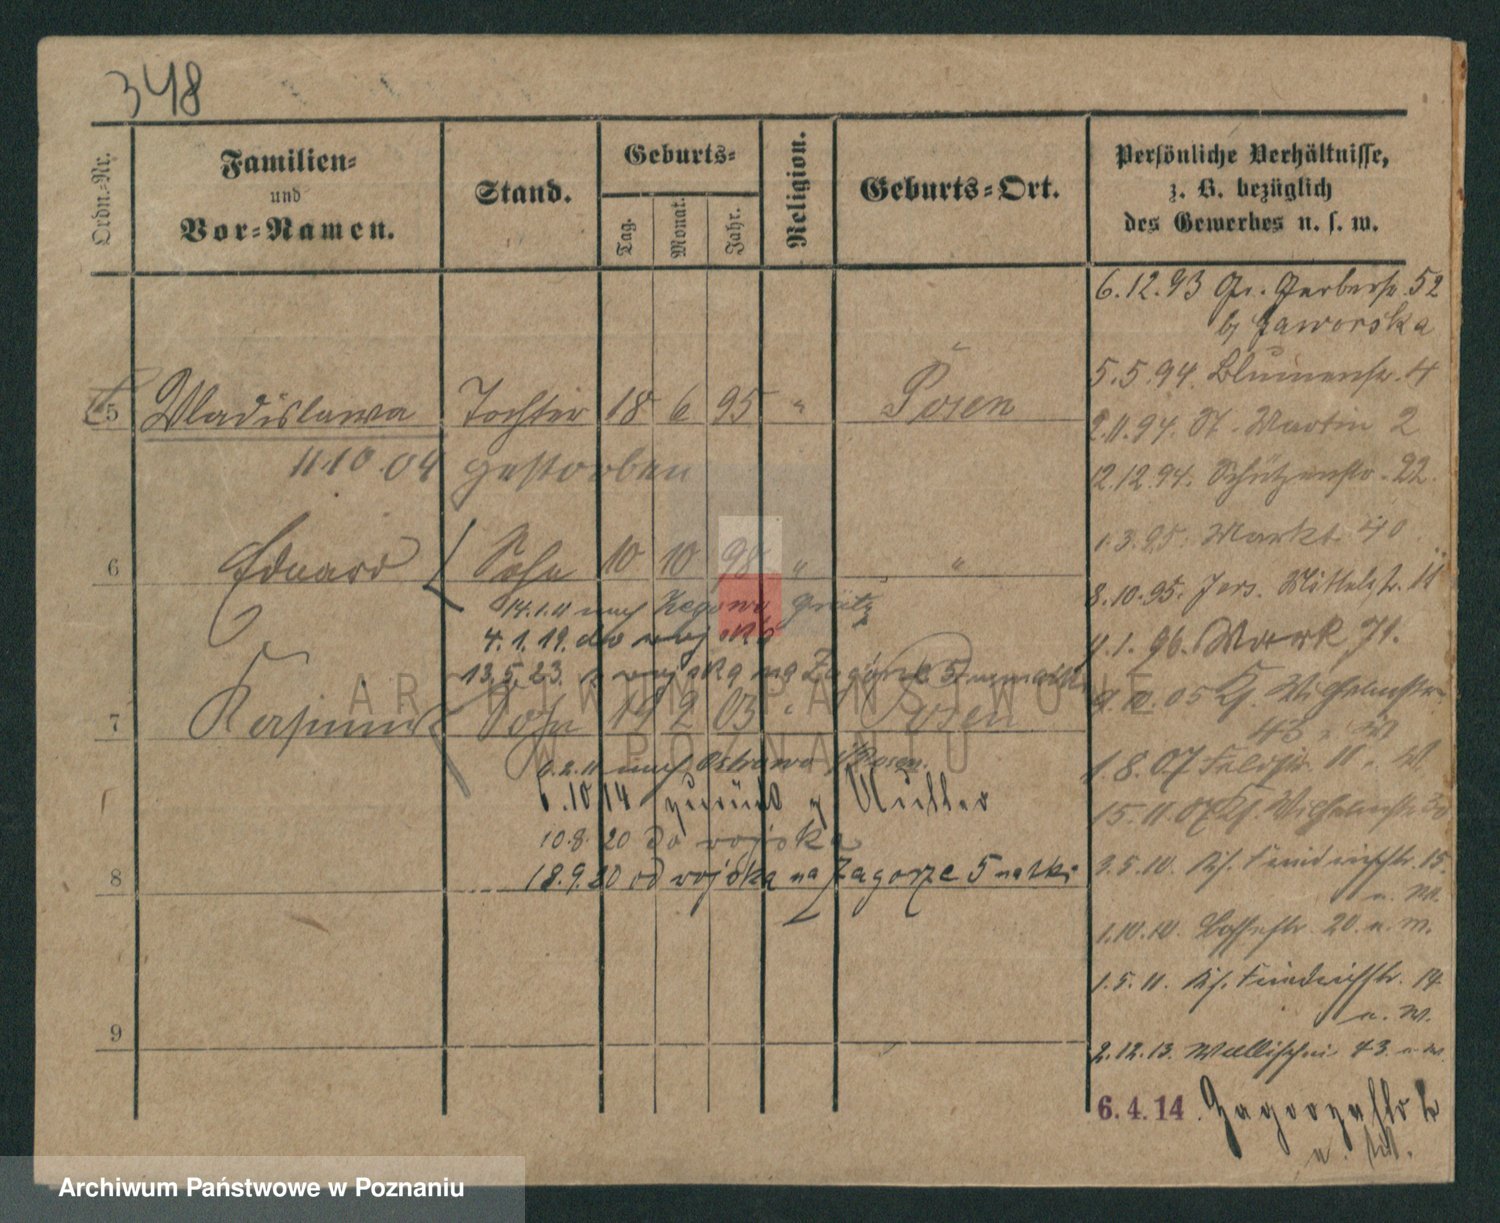 348
Ordn.-Nr.
Familien-
und
Vor-Namen.
Stand.
Geburts-
Tag.
Monat.
Jahr.
Religion.
Geburts-Ort.
Persönliche Verhältnisse,
z. B. bezüglich
des Gewerbes u. s. w.
6.12.93 Gr. Gerberstr. 52
b/ Jaworska
5.5.94. Blumenstr. 4
5 Wladislawa Tochter 18 6 95 " Posen
2.11.94. St. Martin 2
11.10.04 gestorben
12.12.94. Schützenstr. 22.
1.3.95. Markt 40
6 Eduard Sohn 10 10 98 " "
8.10.95. Jers. Mittelstr. 11
14.1.11 nach Kegowo Grätz
4.1.19. do wojska
4.1.96. Mark 71.
13.5.23. z wojska na Zagórze 5
05 Kl. Wilhelmstr.
7 Kasimir Sohn 19 2 03 " Posen
43
6.2.11 nach Ostrowo Posen.
1.8.07 Feldstr. 11
6.10.14 zurück z Mutter
15.11.07 Kl. Wilhelmstr.
10.8.20 do wojska
3.5.10. Friedrichstr. 15.
u. M.
8 18.9.20 od wojska na Zagorze 5 matki
1.10.10. 20. u. M.
1.5.11. Friedrichstr. 14
u. M.
9
2.12.13. Wallischei 43 u. M.
6.4.14. Zagorze
u. M.
ARCHIWUM PAŃSTWOWE
W POZNANIU
Archiwum Państwowe w Poznaniu